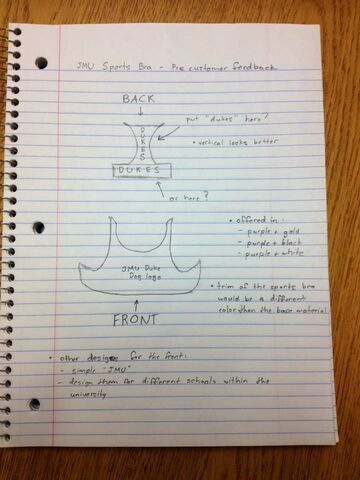 JMU Sports Bra - Pre customer feedback
BACK
put "dukes" here?
• vertical looks better
DUKES
DUKES
or here?
• offered in:
- purple + gold
- purple + black
- purple + white
JMU Duke
Dog logo
• trim of the sports bra
would be a different
color than the base material
FRONT
• other designs for the front:
- simple "JMU"
- design them for different schools within the
university